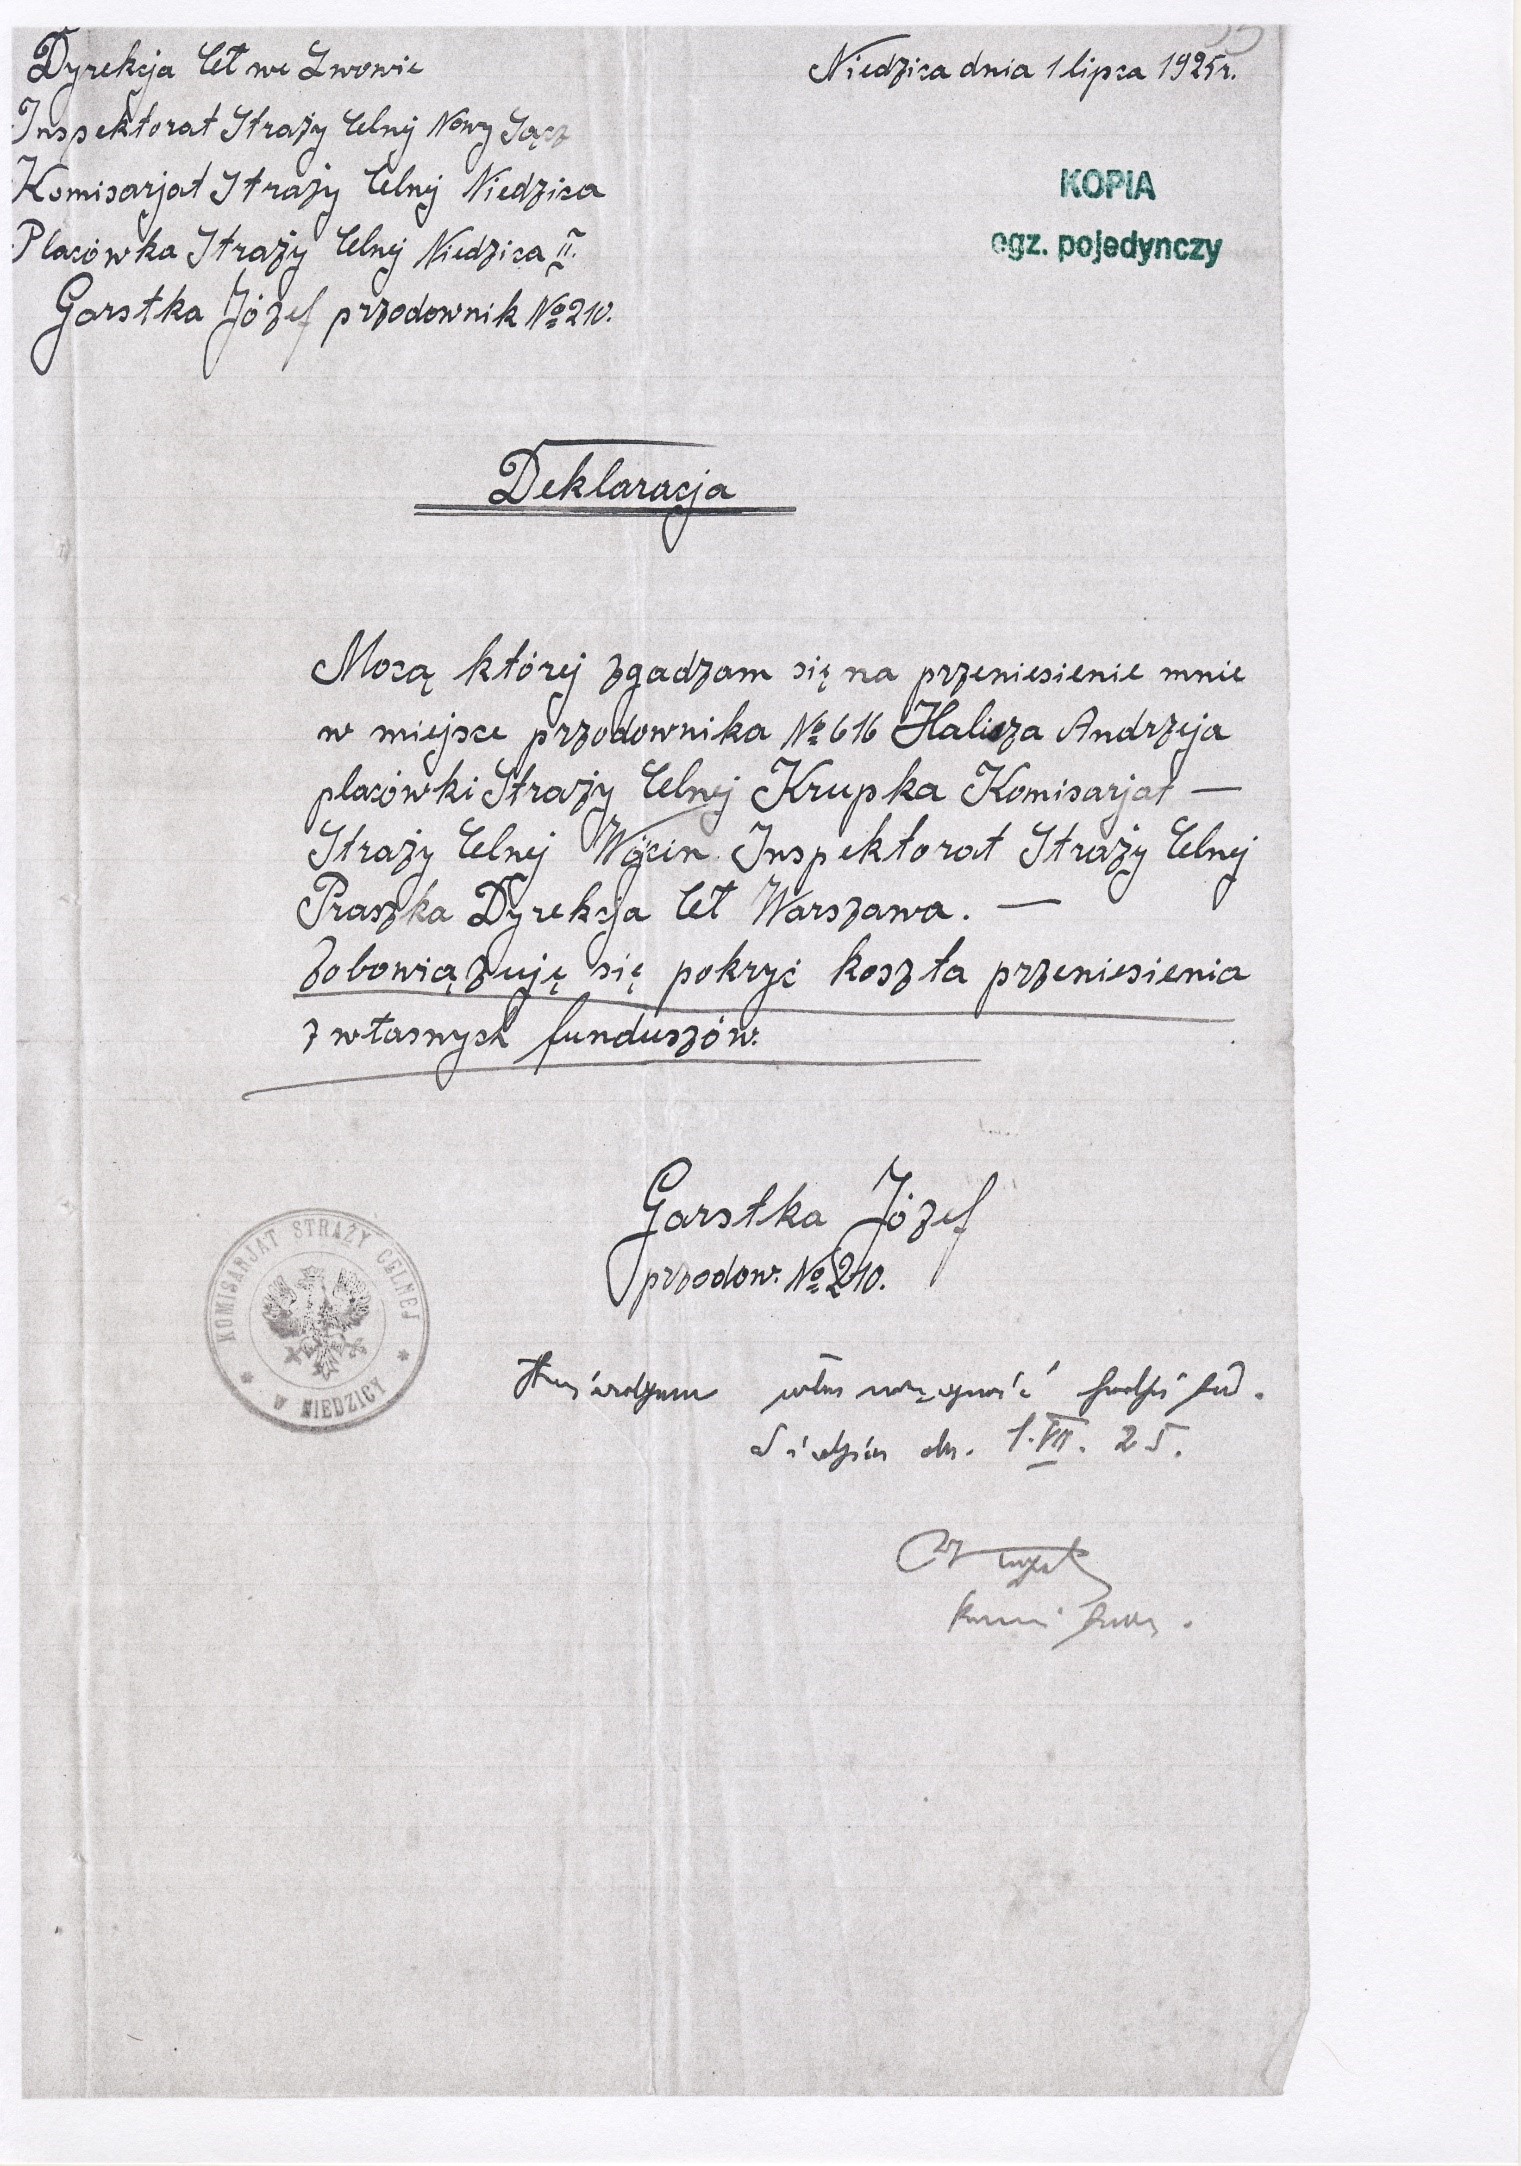 Dyrekcja Ceł we Lwowie
Inspektorat Straży Celnej Nowy Sącz
Komisarjat Straży Celnej Niedzica
Placówka Straży Celnej Niedzica II.
Garstka Józef przodownik № 210.
Niedzica dnia 1 lipca 1925 r.
KOPIA
egz. pojedynczy
Deklaracja
Mocą której zgadzam się na przeniesienie mnie
w miejsce przodownika № 616 Halisza Andrzeja
placówki Straży Celnej Krupka Komisarjat —
Straży Celnej Wójcin Inspektorat Straży Celnej
Praszka Dyrekcja Ceł Warszawa. —
Zobowiązuję się pokryć koszta przeniesienia
z własnych funduszów.
Garstka Józef
przodow. № 210.
KOMISARJAT STRAŻY CELNEJ
* W NIEDZICY *
własnoręczność
dn. 1.VII. 25.